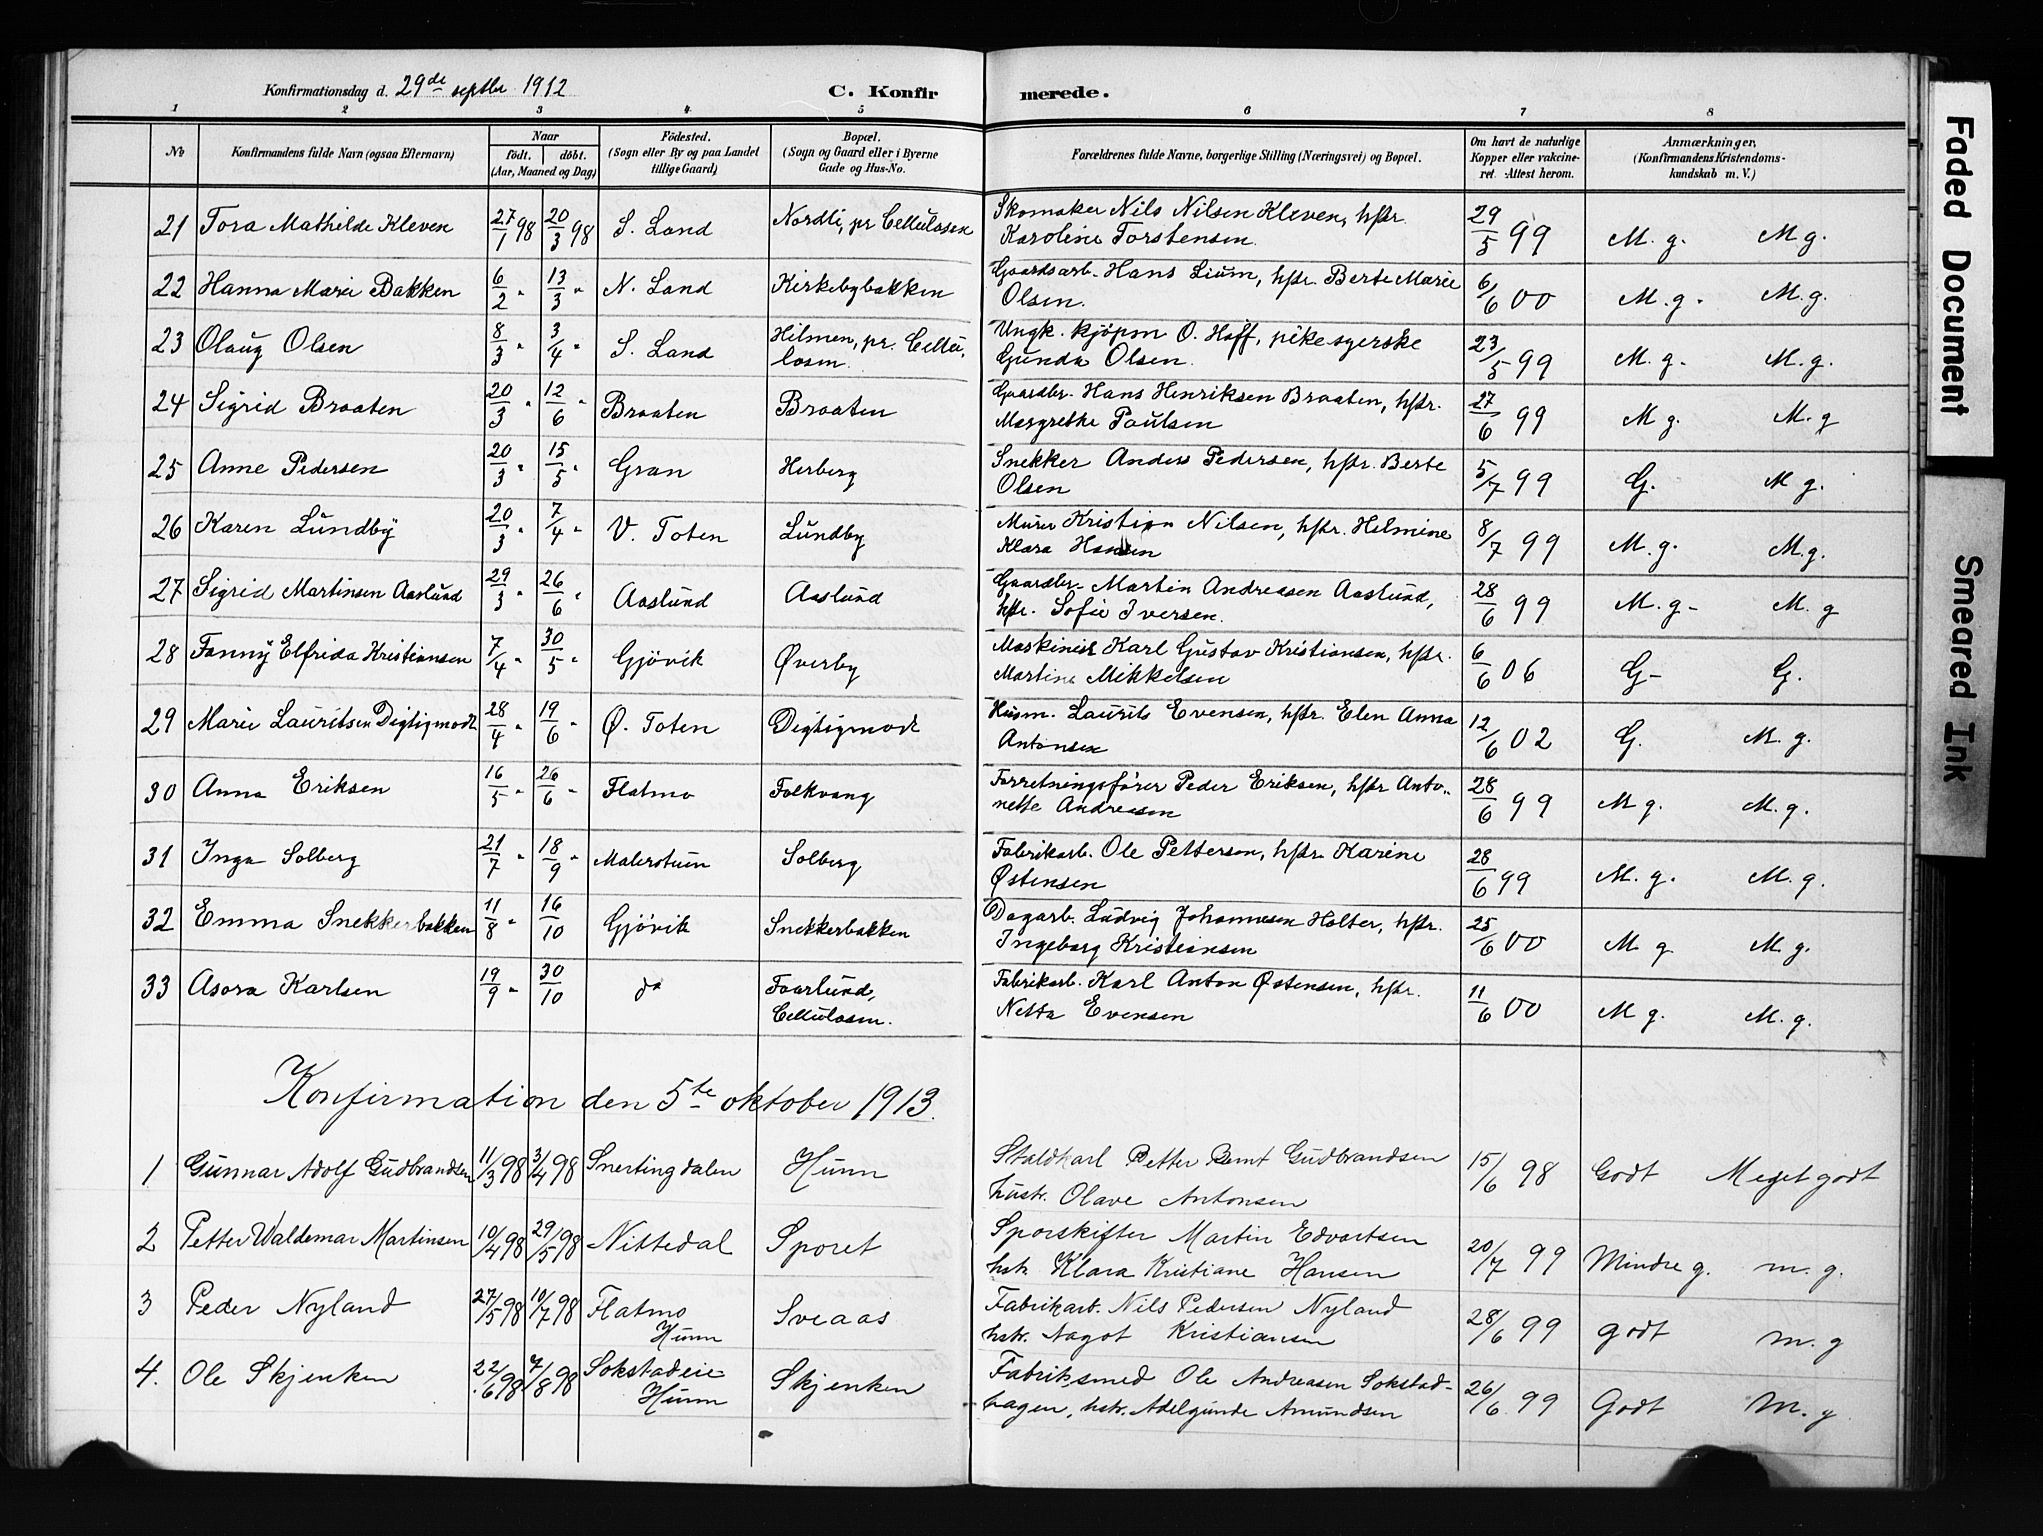 Konfirmationsdag d. 29de septbr 1912
C. Konfirmerede.
1 2 3 4 5 6 7 8
No
Konfirmandens fulde Navn (ogsaa Efternavn)
Naar
födt. döbt.
(Aar, Maaned og Dag)
Födested.
(Sogn eller By og paa Landet
tillige Gaard)
Bopæl.
(Sogn og Gaard eller i Byerne
Gade og Hus-No.
Forældrenes fulde Navne, borgerlige Stilling (Næringsvei) og Bopæl.
Om havt de naturlige
Kopper eller vakcine-
ret. Attest herom.
Anmærkninger,
(Konfirmandens Kristendoms-
kundskab m. V.)
21 Tora Mathilde Kleven 27/1 98 20/3 98 S. Land Nordli, pr Cellulosen Skomaker Nils Nilsen Kleven, hstr.
Karoline Torstensen. 29/5 99 M. g. M g.
22 Hanna Marie Bakken 6/2 " 13/3 " N. Land Kirkebybakken Gaardsarb. Hans Lium, hstr. Berte Marie
Olsen. 6/6 00 M. g. M. g.
23 Olaug Olsen 8/3 " 3/4 " S. Land Hilmen, pr. Cellu-
losen. Ungk. kjøpm O. Hoff, pike syerske
Gunda Olsen. 23/5 99 M. g. M. g.
24 Sigrid Braaten 20/3 " 12/6 " Braaten Braaten Gaardbr. Hans Henriksen Braaten, hstr.
Margrethe Paulsen 27/6 99 M g. M. g
25 Anne Pedersen 20/3 " 15/5 " Gran Herberg Snekker Anders Pedersen, hstr. Berte
Olsen 5/7 99 G. M g.
26 Karen Lundby 20/3 " 7/4 " V. Toten Lundby Murer Kristian Nilsen, hstr. Helmine
Klara Hansen 8/7 99 M. g. M. g.
27 Sigrid Martinsen Aaslund 29/3 " 26/6 " Aaslund Aaslund Gaardbr. Martin Andreasen Aaslund,
hstr. Sofie Iversen. 28/6 99 M. g- M. g
28 Fanny Elfrida Kristiansen 7/4 " 30/5 " Gjövik Øverby Maskinist Karl Gustav Kristiansen, hstr.
Martine Mikkelsen 6/6 06 G- G.
29 Marie Lauritsen Digtigmodt 28/4 " 19/6 " Ø. Toten Digtigmodt Husm. Laurits Evensen, hstr. Elen Anna
Antonsen 12/6 02 G. M. g.
30 Anna Eriksen 16/5 " 26/6 " Flatmo Folkvang Forretningsfører Peder Eriksen, hstr Anto-
nette Andreasen 28/6 99 M g. M. g.
31 Inga Solberg 21/7 " 18/9 " Malerstuen Solberg Fabrikarb. Ole Pettersen, hstr. Karine
Østensen 28/6 99 M. g. M. g.
32 Emma Snekkerbakken 11/8 " 16/10 Gjövik Snekkerbakken Dagarb. Ludvig Johannesen Holter, hstr.
Ingeborg Kristiansen 25/6 00 M g M. g.
33 Asora Karlsen 19/9 " 30/10 do Faarlund,
Cellulosen. Fabrikarb. Karl Anton Østensen, hstr.
Netta Evensen 11/6 00 M g. M. g.
Konfirmation den 5te oktober 1913.
1 Gunnar Adolf Gudbrandsen 11/3 98 3/4 98 Snertingdalen Hunn Staldkarl Petter Bernt Gudbrandsen
hustr. Olave Antonsen 15/6 98 Godt Meget godt
2 Petter Waldemar Martinsen 10/4 98 29/5 98 Nittedal Sporet Sporskifter Martin Edvartsen
hstr. Klara Kristiane Hansen 20/7 99 Mindre g. m. g.
3 Peder Nyland 27/5 98 10/7 98 Flatmo
Hunn Sveaas Fabrikarb. Nils Pedersen Nyland
hstr. Nagot Kristiansen 28/6 99 godt m. g
4. Ole Skjenken 22/6 98 7/8 98 Sokstadeie
Hunn Skjenken Fabriksmed Ole Andreasen Sokstad-
hagen, hstr. Adelgunde Amundsen 26/6 99 Godt M. g
Faded Document
Smeared Ink